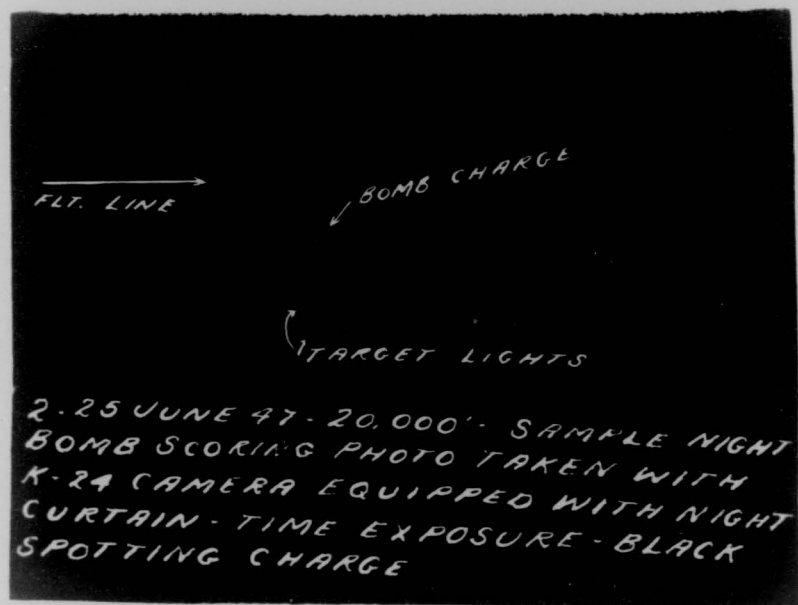 BOMB CHARGE
FLT. LINE
TARGET LIGHTS
2-25 JUNE 47-20,000'- SAMPLE NIGHT
BOMB SCORING PHOTO TAKEN WITH
K-24 CAMERA EQUIPPED WITH NIGHT
CURTAIN-TIME EXPOSURE-BLACK
SPOTTING CHARGE